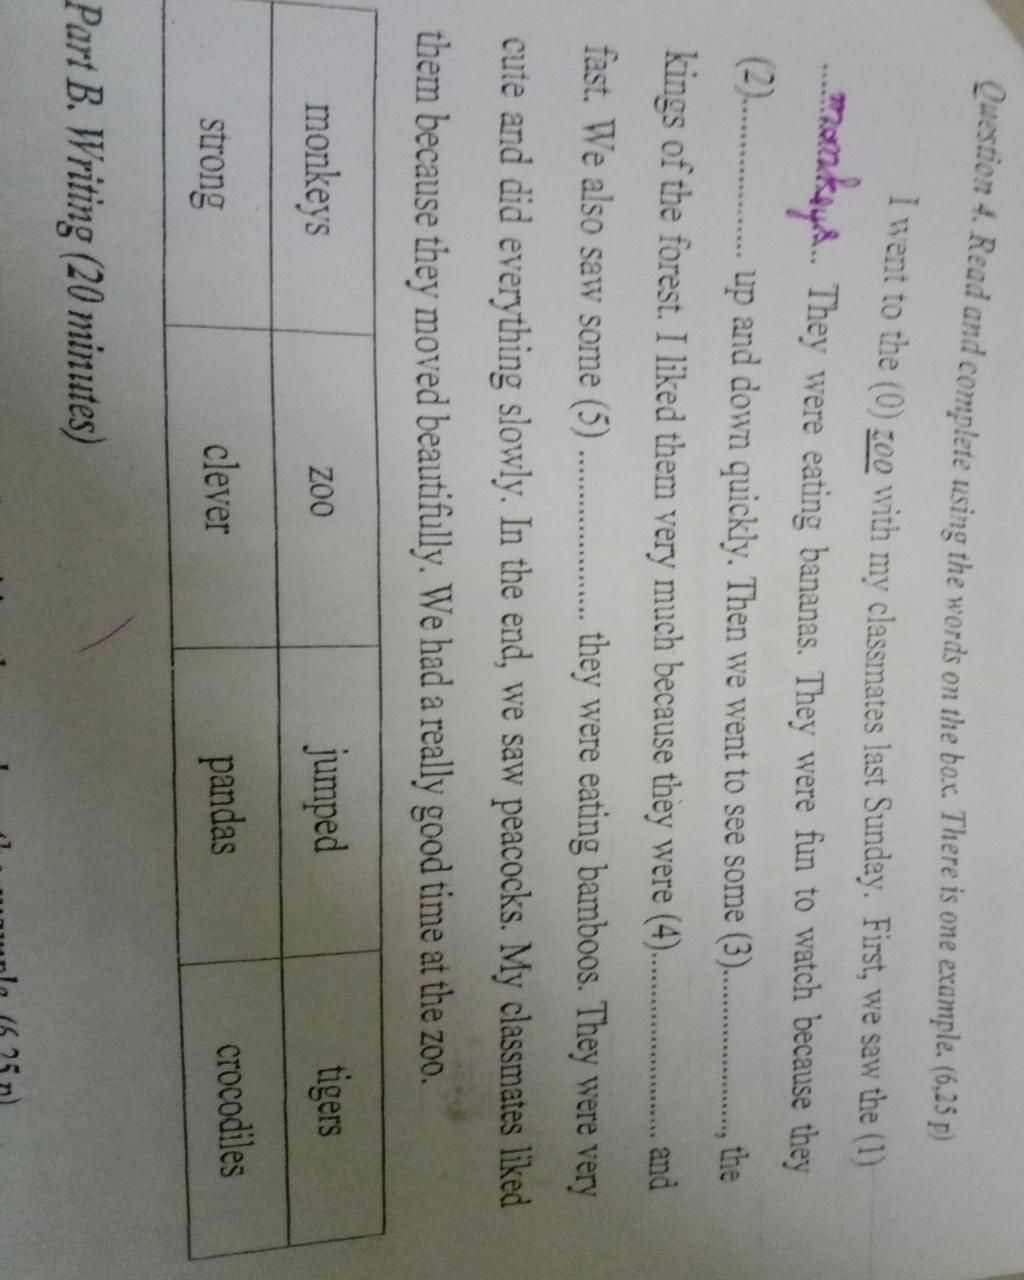 Question 4. Read and complete using the words on the box. There is one example. (6.25 p)
I went to the (0) zoo with my classmates last Sunday. First, we saw the (1)
.......monkeys.. They were eating bananas. They were fun to watch because they
(2)................... up and down quickly. Then we went to see some (3)..................., the
kings of the forest. I liked them very much because they were (4)...................... and
fast. We also saw some (5) .................... they were eating bamboos. They were very
cute and did everything slowly. In the end, we saw peacocks. My classmates liked
them because they moved beautifully. We had a really good time at the zoo.
monkeys zoo jumped tigers
strong clever pandas crocodiles
Part B. Writing (20 minutes)
(6.25 p)